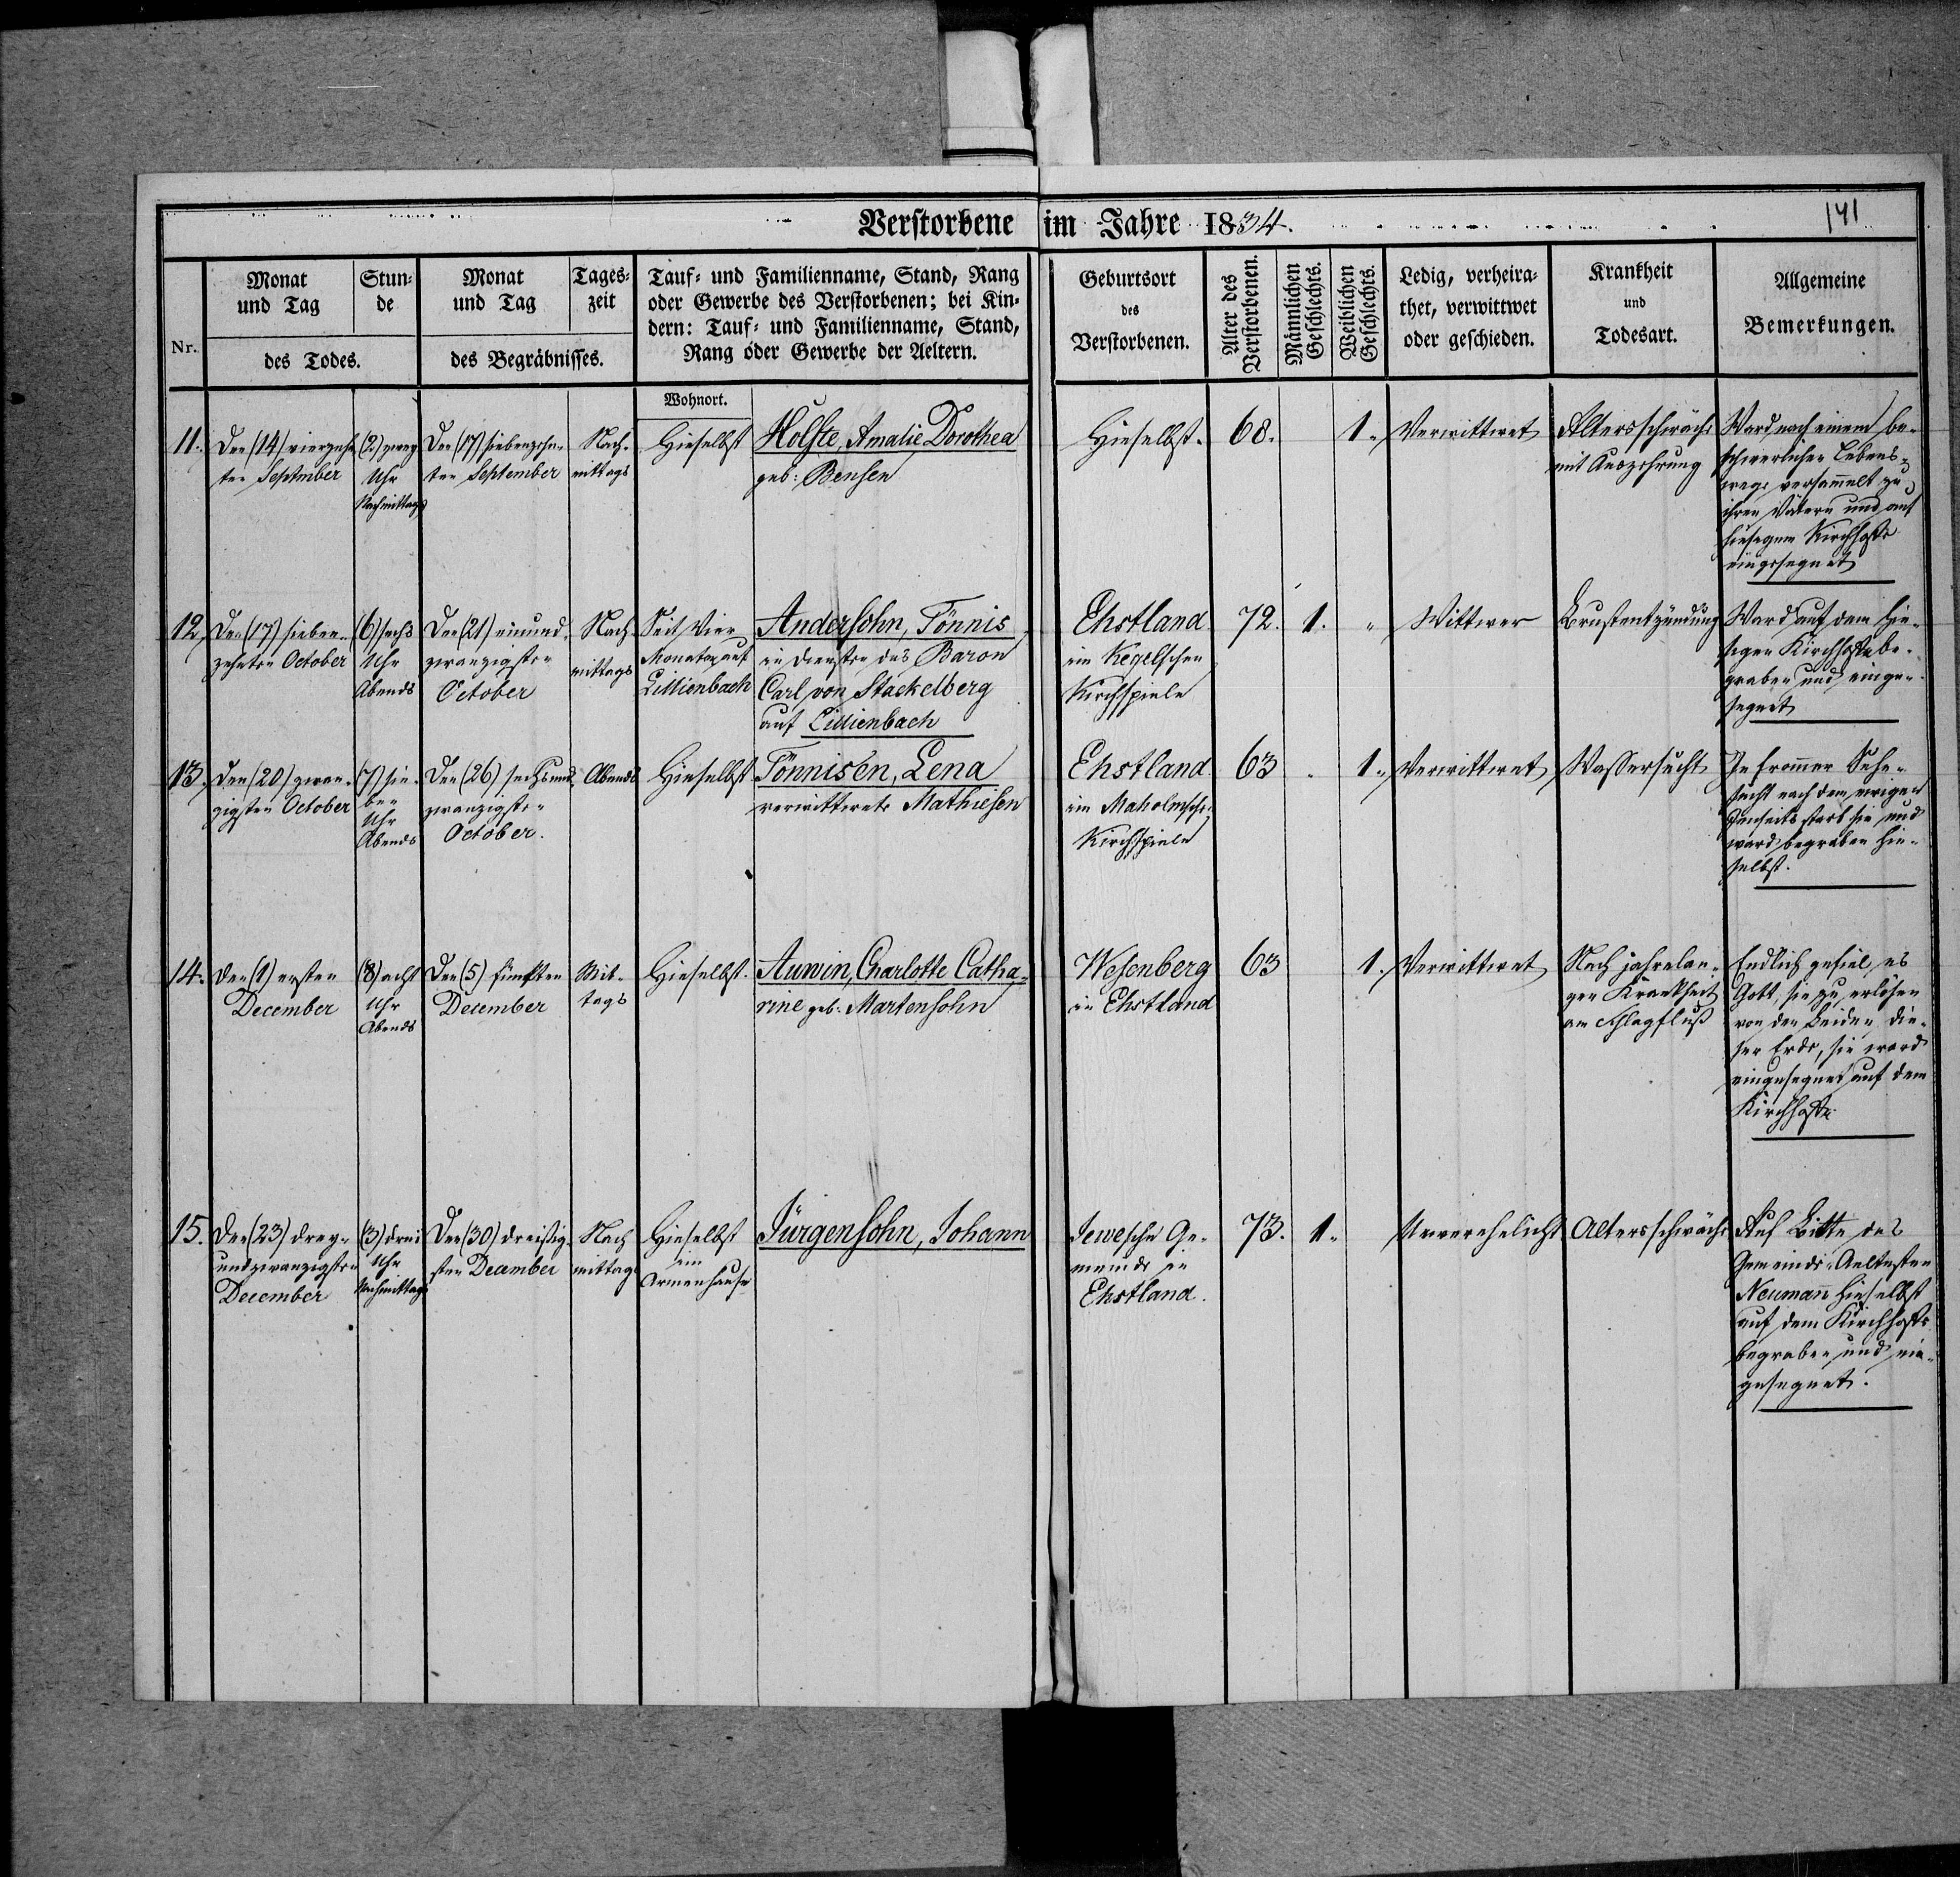 Verstorbene im Jahre 1834.
141
Nr.
Monat und Tag
Stunde
des Todes.
Monat und Tag
Tageszeit
des Begräbnisses.
Tauf- und Familienname, Stand, Rang
oder Gewerbe des Verstorbenen; bei Kin-
dern: Tauf- und Familienname, Stand,
Rang oder Gewerbe der Aeltern.
Wohnort.
Geburtsort
des
Verstorbenen.
Alter des
Verstorbenen.
Männlichen
Geschlechts.
Weiblichen
Geschlechts.
Ledig, verheira-
thet, verwittwet
oder geschieden.
Krankheit
und
Todesart.
Allgemeine
Bemerkungen.
11.
Den (14) vierzehn-
ten September
(2) zwey
Uhr
Nachmittags
Den (17) siebenzehn-
ten September
Nach-
mittags
Hieselbst
Holste, Amalie Dorothea
geb: Bensen
Hieselbst.
68.
1.
Verwittwet
Altersschwäche
mit Auszehrung
Ward nach einem be-
schwerlichen Lebens-
wege versam̄elt zu
ihren Vätern und auf
hiesigem Kirchhofe
eingesegnet
12.
Den (17) sieben-
zehnten October
(6) sechs
Uhr
Abends
Den (21) einund-
zwanzigsten
October
Nach-
mittags
Seit vier
Monaten auf
Lillienbach
Andersohn, Tönnis
in Diensten des Baron
Carl von Stackelberg
auf Lillienbach
Ehstland
im Kegelschen
Kirchspiele
72.
1.
"
Wittwer
Brustentzündung
Ward auf dem hie-
sigen Kirchhofe be-
graben und einge-
segnet
13.
Den (20) zwan-
zigsten October
(7) sie-
ben
Uhr
Abends
Den (26) sechsund-
zwanzigsten
October.
Abends
Hieselbst
Tönnisen, Lena
verwittwete Mathiesen
Ehstland
im Maholmsche
Kirchspiele
63
"
1.
Verwittwet
Wassersucht
In from̄er Sehn-
sucht nach dem ewigen
Jenseits starb sie und
ward begraben hie-
selbst.
14.
Den (1) ersten
December
(8) acht
Uhr
Abends
Den (5) fünften
December
Mit-
tags
Hieselbst.
Auwin, Charlotte Catha-
rine geb. Martensohn
Wesenberg
in Ehstland
63
1.
Verwittwet
Nach jahrelan-
gen Krankheit
am Schlagfluß
Endlich gefiel es
Gott, sie zu erlösen
von den Leiden die-
ser Erde, sie ward
eingesegnet auf dem
Kirchhofe.
15.
Den (23) drey-
undzwanzigsten
December
(3) drei
Uhr
Nachmittags
Den (30) dreißig-
sten December
Nach
mittags
Hieselbst
im
Armenhause
Jürgensohn, Johann
Jewesche Ge-
meinde in
Ehstland.
73.
1.
Unverehelicht
Altersschwäche
Auf Bitte des
Gemeinde-Aeltesten
Neuman̄ hieselbst
auf dem Kirchhofe
begraben und ein-
gesegnet.